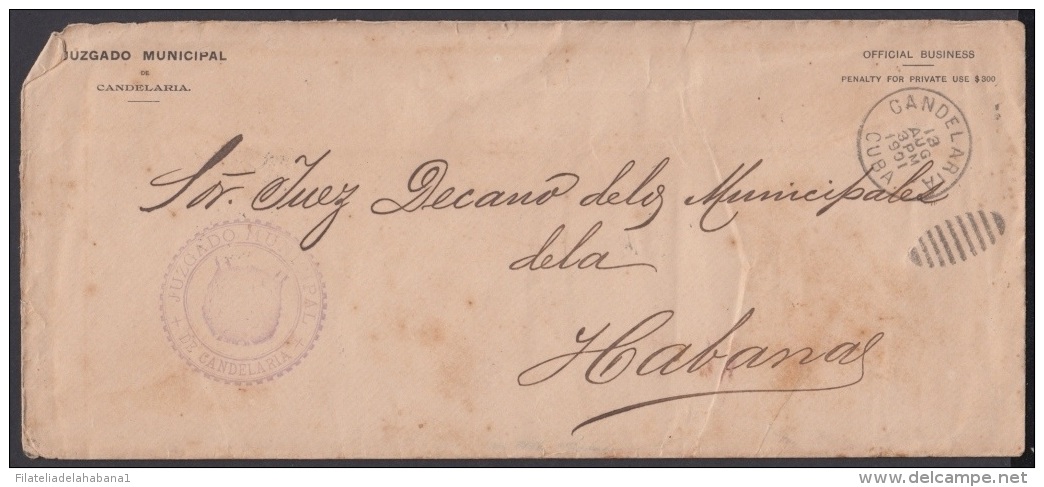 JUZGADO MUNICIPAL
DE
CANDELARIA.
OFFICIAL BUSINESS
PENALTY FOR PRIVATE USE $300
CANDELARIA
13
AUG
3 PM
1901
CUBA
Sōr. Juez Decano delos Municipales
dela
Habana
JUZGADO MUNICIPAL
DE CANDELARIA
Filateliadelahabana1
delcampe.net